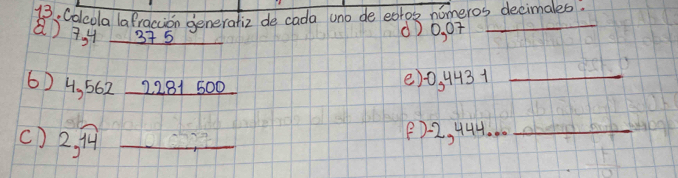 13. Calcula la fracción generatiz de cada uno de estos números decimales.
a) 7,4 37 5
d) 0,07
b) 4,562 2281 500
e) -0,443 1
c) 2,14
f) -2,444...